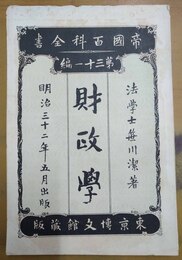 帝國百科全書
第三十一編
法學士笹川潔著
財政學
明治三十二年五月出版
東京博文館藏版